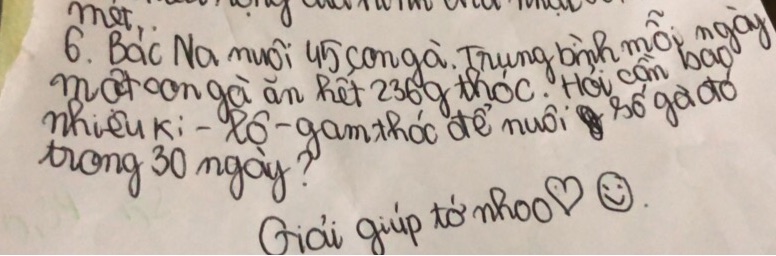 mét,
6. Bác Na nuôi 45 con gà. Trung bình mỗi ngày
một con gà ăn hết 236g thóc. Hỏi cần bao
nhiêu Ki-lô-gam thóc để nuôi số gà đó
trong 30 ngày?
Giải giúp tớ nhoo♡☺.